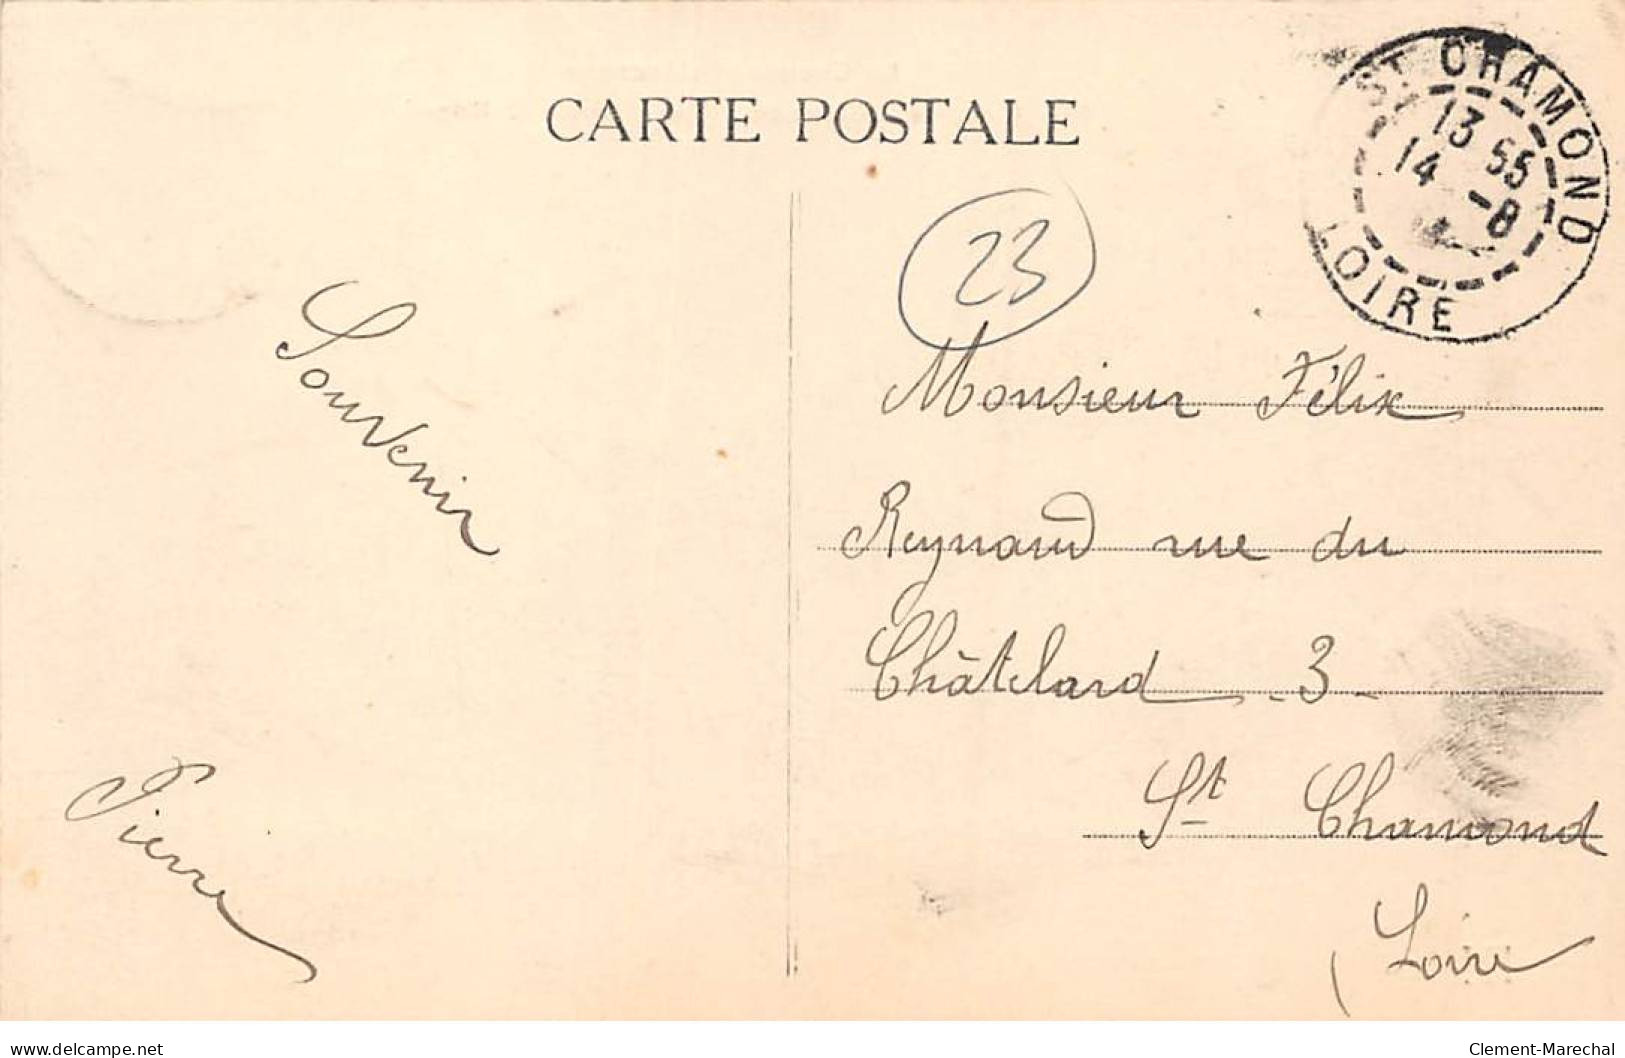 CARTE POSTALE
ST CHAMOND
13 55
14 -8
LOIRE
23
Souvenir
Pierre
Monsieur Félix
Reynaud rue du
Châtelard - 3 -
St Chamond
(Loire
www.delcampe.net
Clement-Marechal